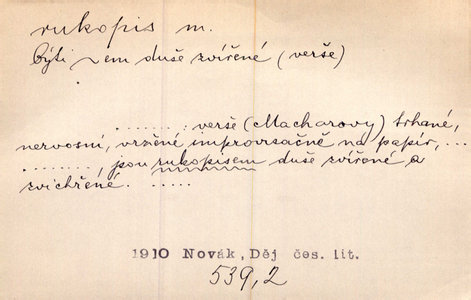 rukopis m.
býti ~em duše zvířené (verše)
........ verše (Macharovy) trhané,
nervosní, vržené improvisačně na papír, ...
........, jsou rukopisem duše zvířené a
zvichřené. .....
1910 Novák, Děj čes. lit.
539,2